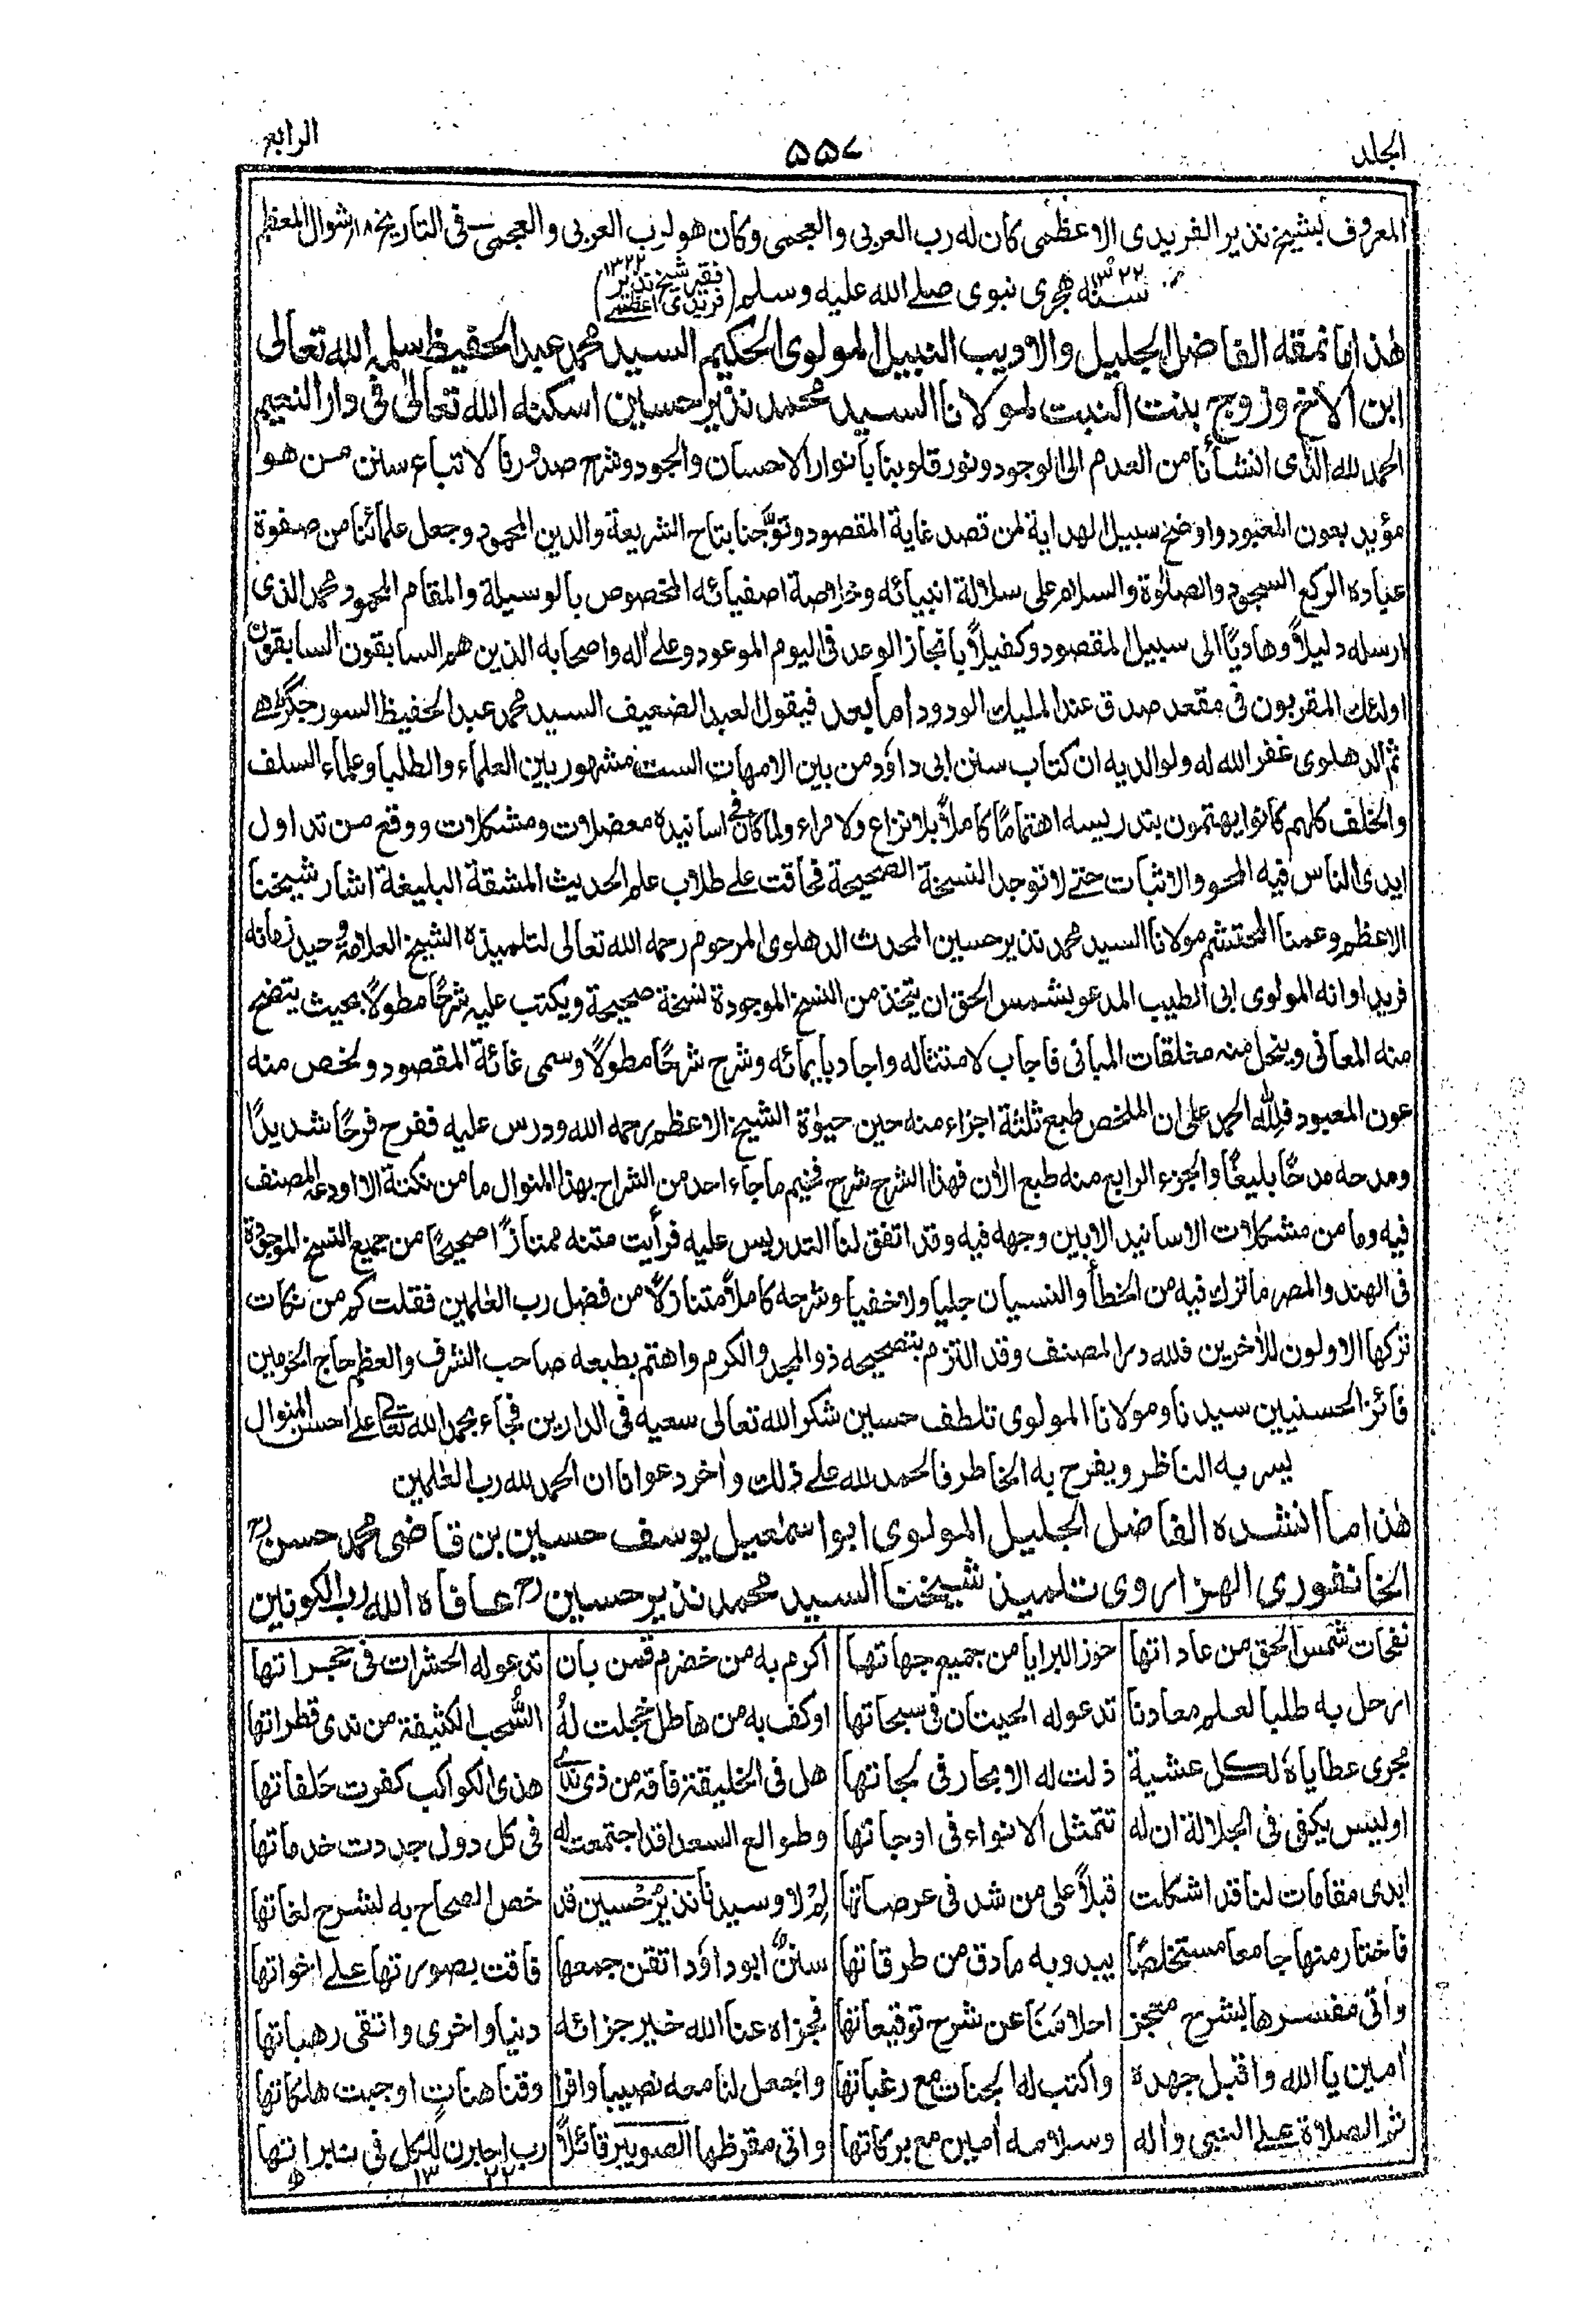 الجلد
۵۵۷
الرابع
المعروف بشيخ نذير الفريدى الاعظمى كان له رب العربى والعجمى وكان هو لرب العربى والعجمى فى التاريخ ۱۸ شوال المعظم
سنه ۱۳۲۲ هجرى نبوى صلے الله عليه وسلم (فقير شيخ نذير فريدى اعظمى ۱۳۲۲)
هذا ما نمقه الفاضل الجليل والاديب النبيل المولوى الحكيم السيد محمد عبد الحفيظ سلمه الله تعالى
ابن الاخ وزوج بنت البنت لمولانا السيد محمد نذير حسين اسكنه الله تعالىٰ فى دار النعيم
الحمد لله الذى انشأنا من العدم الى الوجود ونور قلوبنا بأنوار الاحسان والجود وشرح صدورنا لاتباع سنن من هو
مؤيد بعون المعبود واوضح سبيل الهداية لمن قصد غاية المقصود وتوّجنا بتاج الشريعة والدين المحمود وجعل علمائنا من صفوة
عباده الركع السجود والصلوٰة والسلام على سلالة انبيائه وخلاصة اصفيائه المخصوص بالوسيلة والمقام المحمود محمد الذى
ارسله دليلاً وهاديًا الى سبيل المقصود وكفيلاً بانجاز الوعد فى اليوم الموعود وعلے اٰله واصحابه الذين هم السابقون السابقون
اولئك المقربون فى مقعد صدق عند المليك الودود اما بعد فيقول العبد الضعيف السيد محمد عبد الحفيظ السورجگڑھے
ثم الدهلوى غفر الله له ولوالديه ان كتاب سنن ابى داؤد من بين الامهات الست مشهور بين العلماء والطلبا وعلماء السلف
والخلف كلهم كانوا يهتمون بتدريسه اهتمامًا كاملاً بلا نزاع ولا مراء ولما كان فى اسانيده معضلات ومشكلات ووقع من تداول
ايدى الناس فيه المحو والاثبات حتے لا توجد النسخة الصحيحة فحاقت علے طلاب علم الحديث المشقة البليغة اشار شيخنا
الاعظم وعمنا المحتشم مولانا السيد محمد نذير حسين المحدث الدهلوى المرحوم رحمه الله تعالى لتلميذه الشيخ العلامة وحيد زمانه
فريد اوانه المولوى ابى الطيب المدعو بشمس الحق ان يتخذ من النسخ الموجودة نسخة صحيحة ويكتب عليه شرحًا مطولاً بحيث يتضح
منه المعانى وينحل منه مغلقات المبانى فاجاب لامتثاله واجاد بايمائه وشرح شرحًا مطولاً وسمى غائة المقصود ولخص منه
عون المعبود فللّٰه الحمد على ان الملخص طبع ثلثة اجزاء منه حين حيوٰة الشيخ الاعظم رحمه الله ودرس عليه ففرح فرحًا شديدًا
ومدحه مدحًا بليغًا والجزء الرابع منه طبع الاٰن فهذا الشرح شرح فخيم ما جاء احد من الشراح بهذا المنوال ما من نكتة الا اودعه المصنف
فيه وما من مشكلات الاسانيد الا بين وجهه فيه وقد اتفق لنا التدريس عليه فرأيت متنه ممتازًا صحيحًا من جميع النسخ الموجودة
فى الهند والمصر ما ترك فيه من الخطأ والنسيان جليا ولا خفيا وشرحه كاملاً متنازلاً من فضل رب العٰلمين فقلت كم من نكات
تركها الاولون للاٰخرين فلله در المصنف وقد التزم بتصحيحه ذو المجد والكرم واهتم بطبعه صاحب الشرف والعظم حاج الحرمين
فائز الحسنيين سيدنا ومولانا المولوى تلطف حسين شكر الله تعالى سعيه فى الدارين فجاء بحمد الله تعالى علے احسن المنوال
يسر به الناظر ويفرح به الخاطر فالحمد لله علے ذلك واٰخر دعوانا ان الحمد لله رب العٰلمين
هٰذا ما انشده الفاضل الجليل المولوى ابو اسمٰعيل يوسف حسين بن قاضى محمد حسن رح
الخانفورى الهزاروى تلميذ شيخنا السيد محمد نذير حسين رح عافاه الله رب الكونين
نفحات شمس الحق من عاداتها حوز البرايا من جميع جهاتها اكرم به من خضرم قسن بان تدعو له الحشرات فى حجراتها
ارحل به طلبا لعلم معادنا تدعو له الحيتان فى سبحاتها اوكف به من هاطل خجلت لهُ السُّحب الكثيفة من ندى قطراتها
مجرى عطاياه لكل عشية ذلت له الابحار فى لجاتها هل فى الخليقة فاقه من ذى هذى الكواكب كفرت حَلفاتها
اوليس يكفى فى الجلالة ان له تتمثل الانواء فى اوجاتها وطوالع السعد اقد اجتمعت له فى كل دول جددت خدماتها
ابدى مقامات لنا قد اشكلت قبلاً على من شد فى عرصاتها لمولا وسيدنا نذير حسين قد خص الصحاح به لشرح لغاتها
فاختار منها جامعا مستخلصًا يبدو به ما دق من طرقاتها سننٌ ابو داؤد اتقن جمعها فاقت بصورتها علے اخواتها
واتى مفسرها بشرح معجز احلامَنَا عن شرح توقيعاتها فجزاه عنا الله خير جزائه دنيا واخرى واتقى رهباتها
اٰمين يا الله واقبل جهده واكتب له الجنات مع رغباتها واجعل لنا معه نصيبا وافرا وقنا هنات اوجبت هلكاتها
ثم الصلاة علے النبى واٰله وسلامه اٰمين مع بركاتها واتى مقرظها الصويبر قائلاً رب اجيرن للكل فى بنيراتها
۱۳ ۲۲